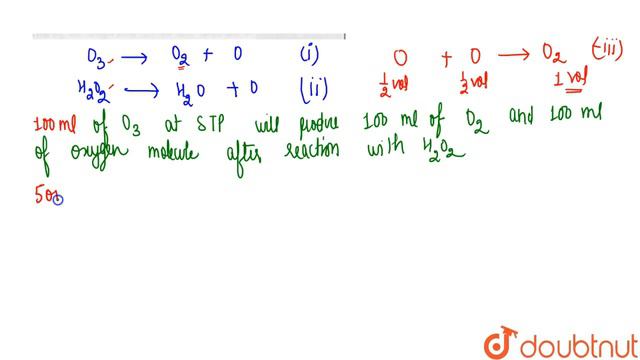 O₃ ⟶ O₂ + O (i)
H₂O₂ ⟶ H₂O + O (ii)
O + O ⟶ O₂ (iii)
1/2 vol 1/2 vol 1 vol
100 ml of O₃ at STP will produce 100 ml of O₂ and 100 ml
of oxygen molecule after reaction with H₂O₂
50
doubtnut